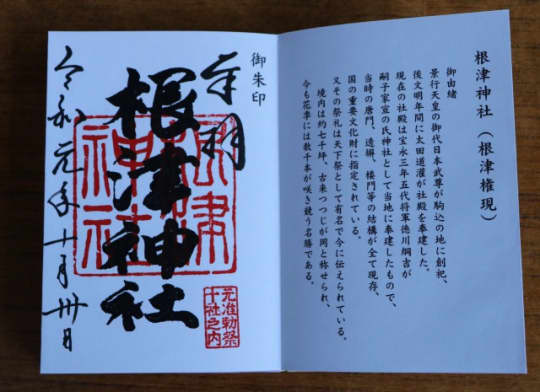 根津神社（根津権現）
御由緒
景行天皇の御代日本武尊が駒込の地に創祀、
後文明年間に太田道灌が社殿を奉建した。
現在の社殿は宝永三年五代将軍徳川綱吉が
嗣子家宣の氏神社として当地に奉建したもので、
当時の唐門、透塀、楼門等の結構が全て現存、
国の重要文化財に指定されている。
又その祭礼は天下祭として有名で今に伝えられている。
境内は約七千坪、古来つつじが岡と称せられ、
今も花季には数千本が咲き競う名勝である。
御朱印
奉拝
元准勅祭
十社之内
根津神社
根津
神社
令和元年十月卅日